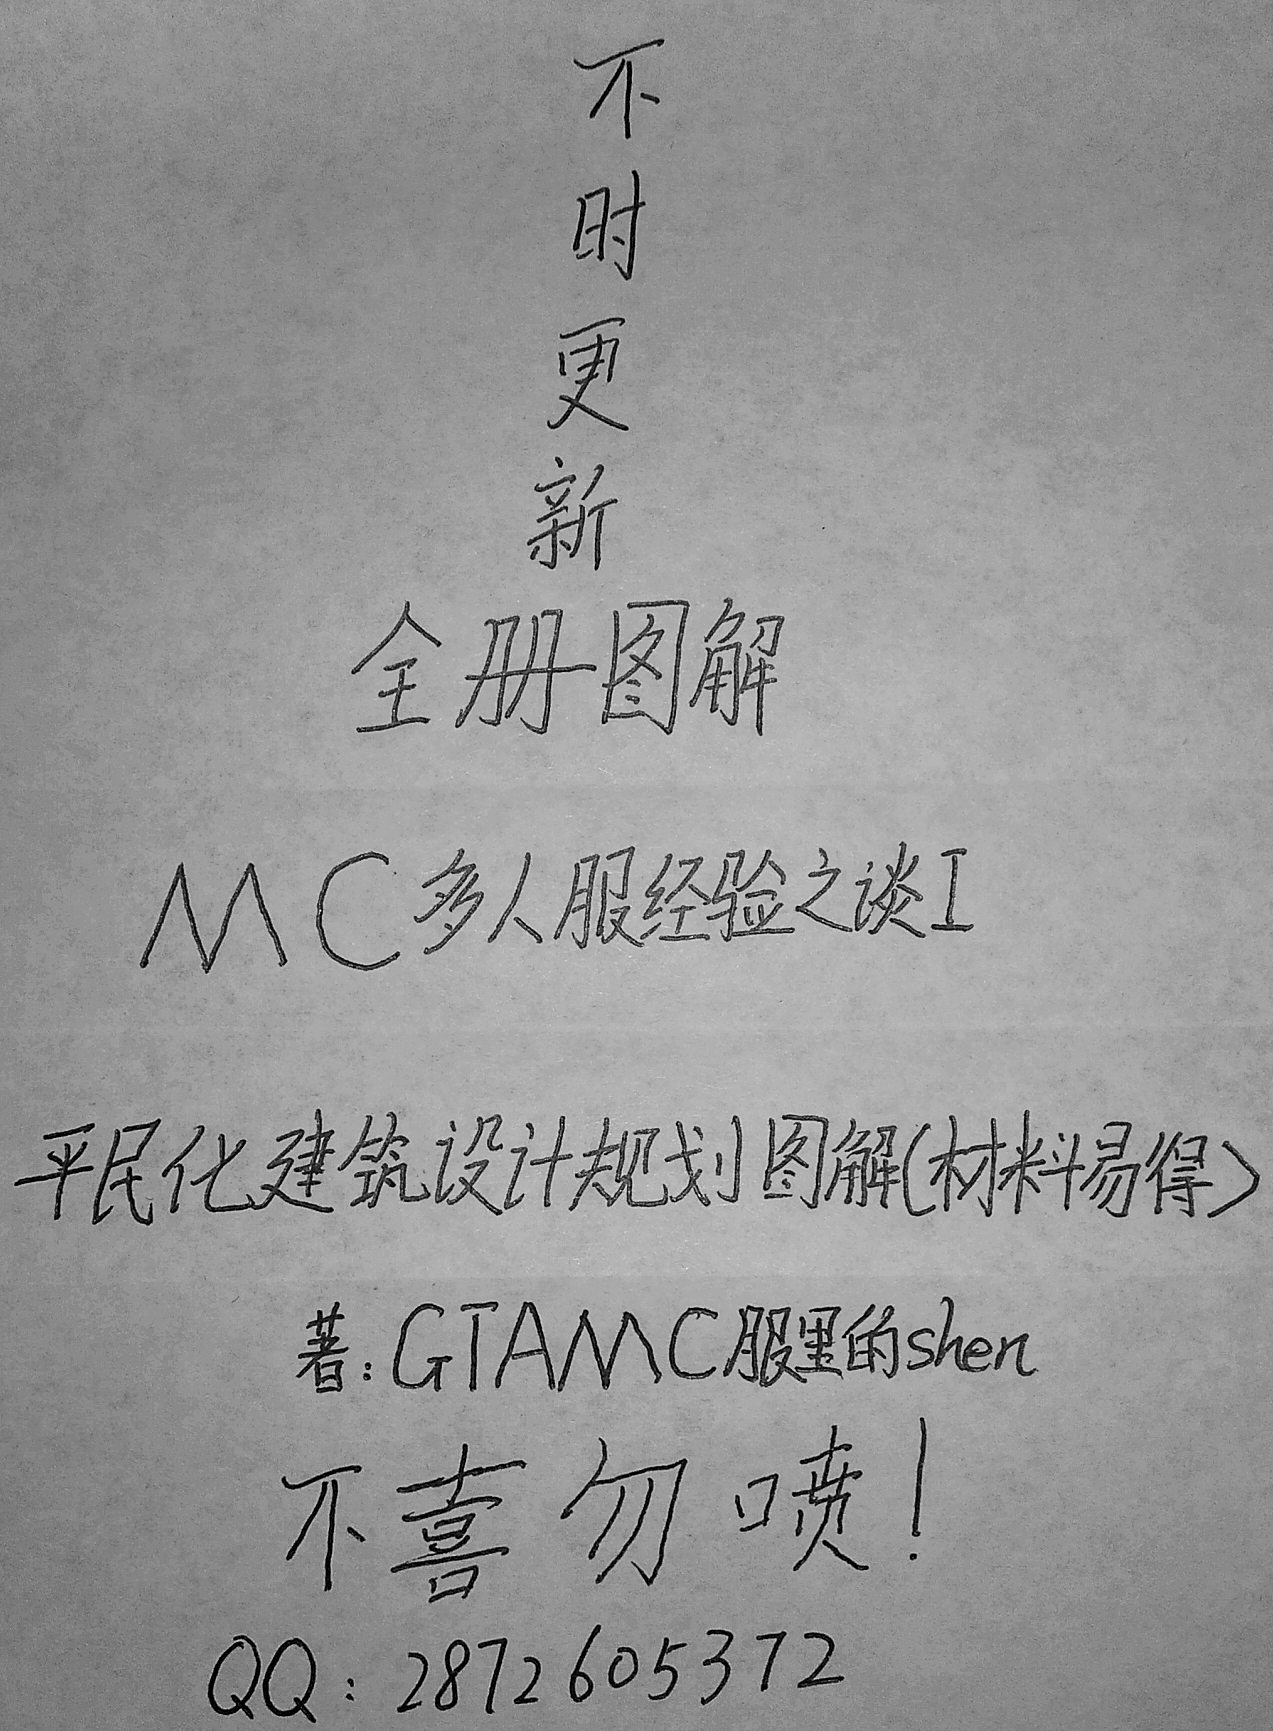 不时更新
全册图解
MC多人服经验之谈I
平民化建筑设计规划图解(材料易得)
著:GTAMC服里的shen
不喜勿喷!
QQ:2872605372